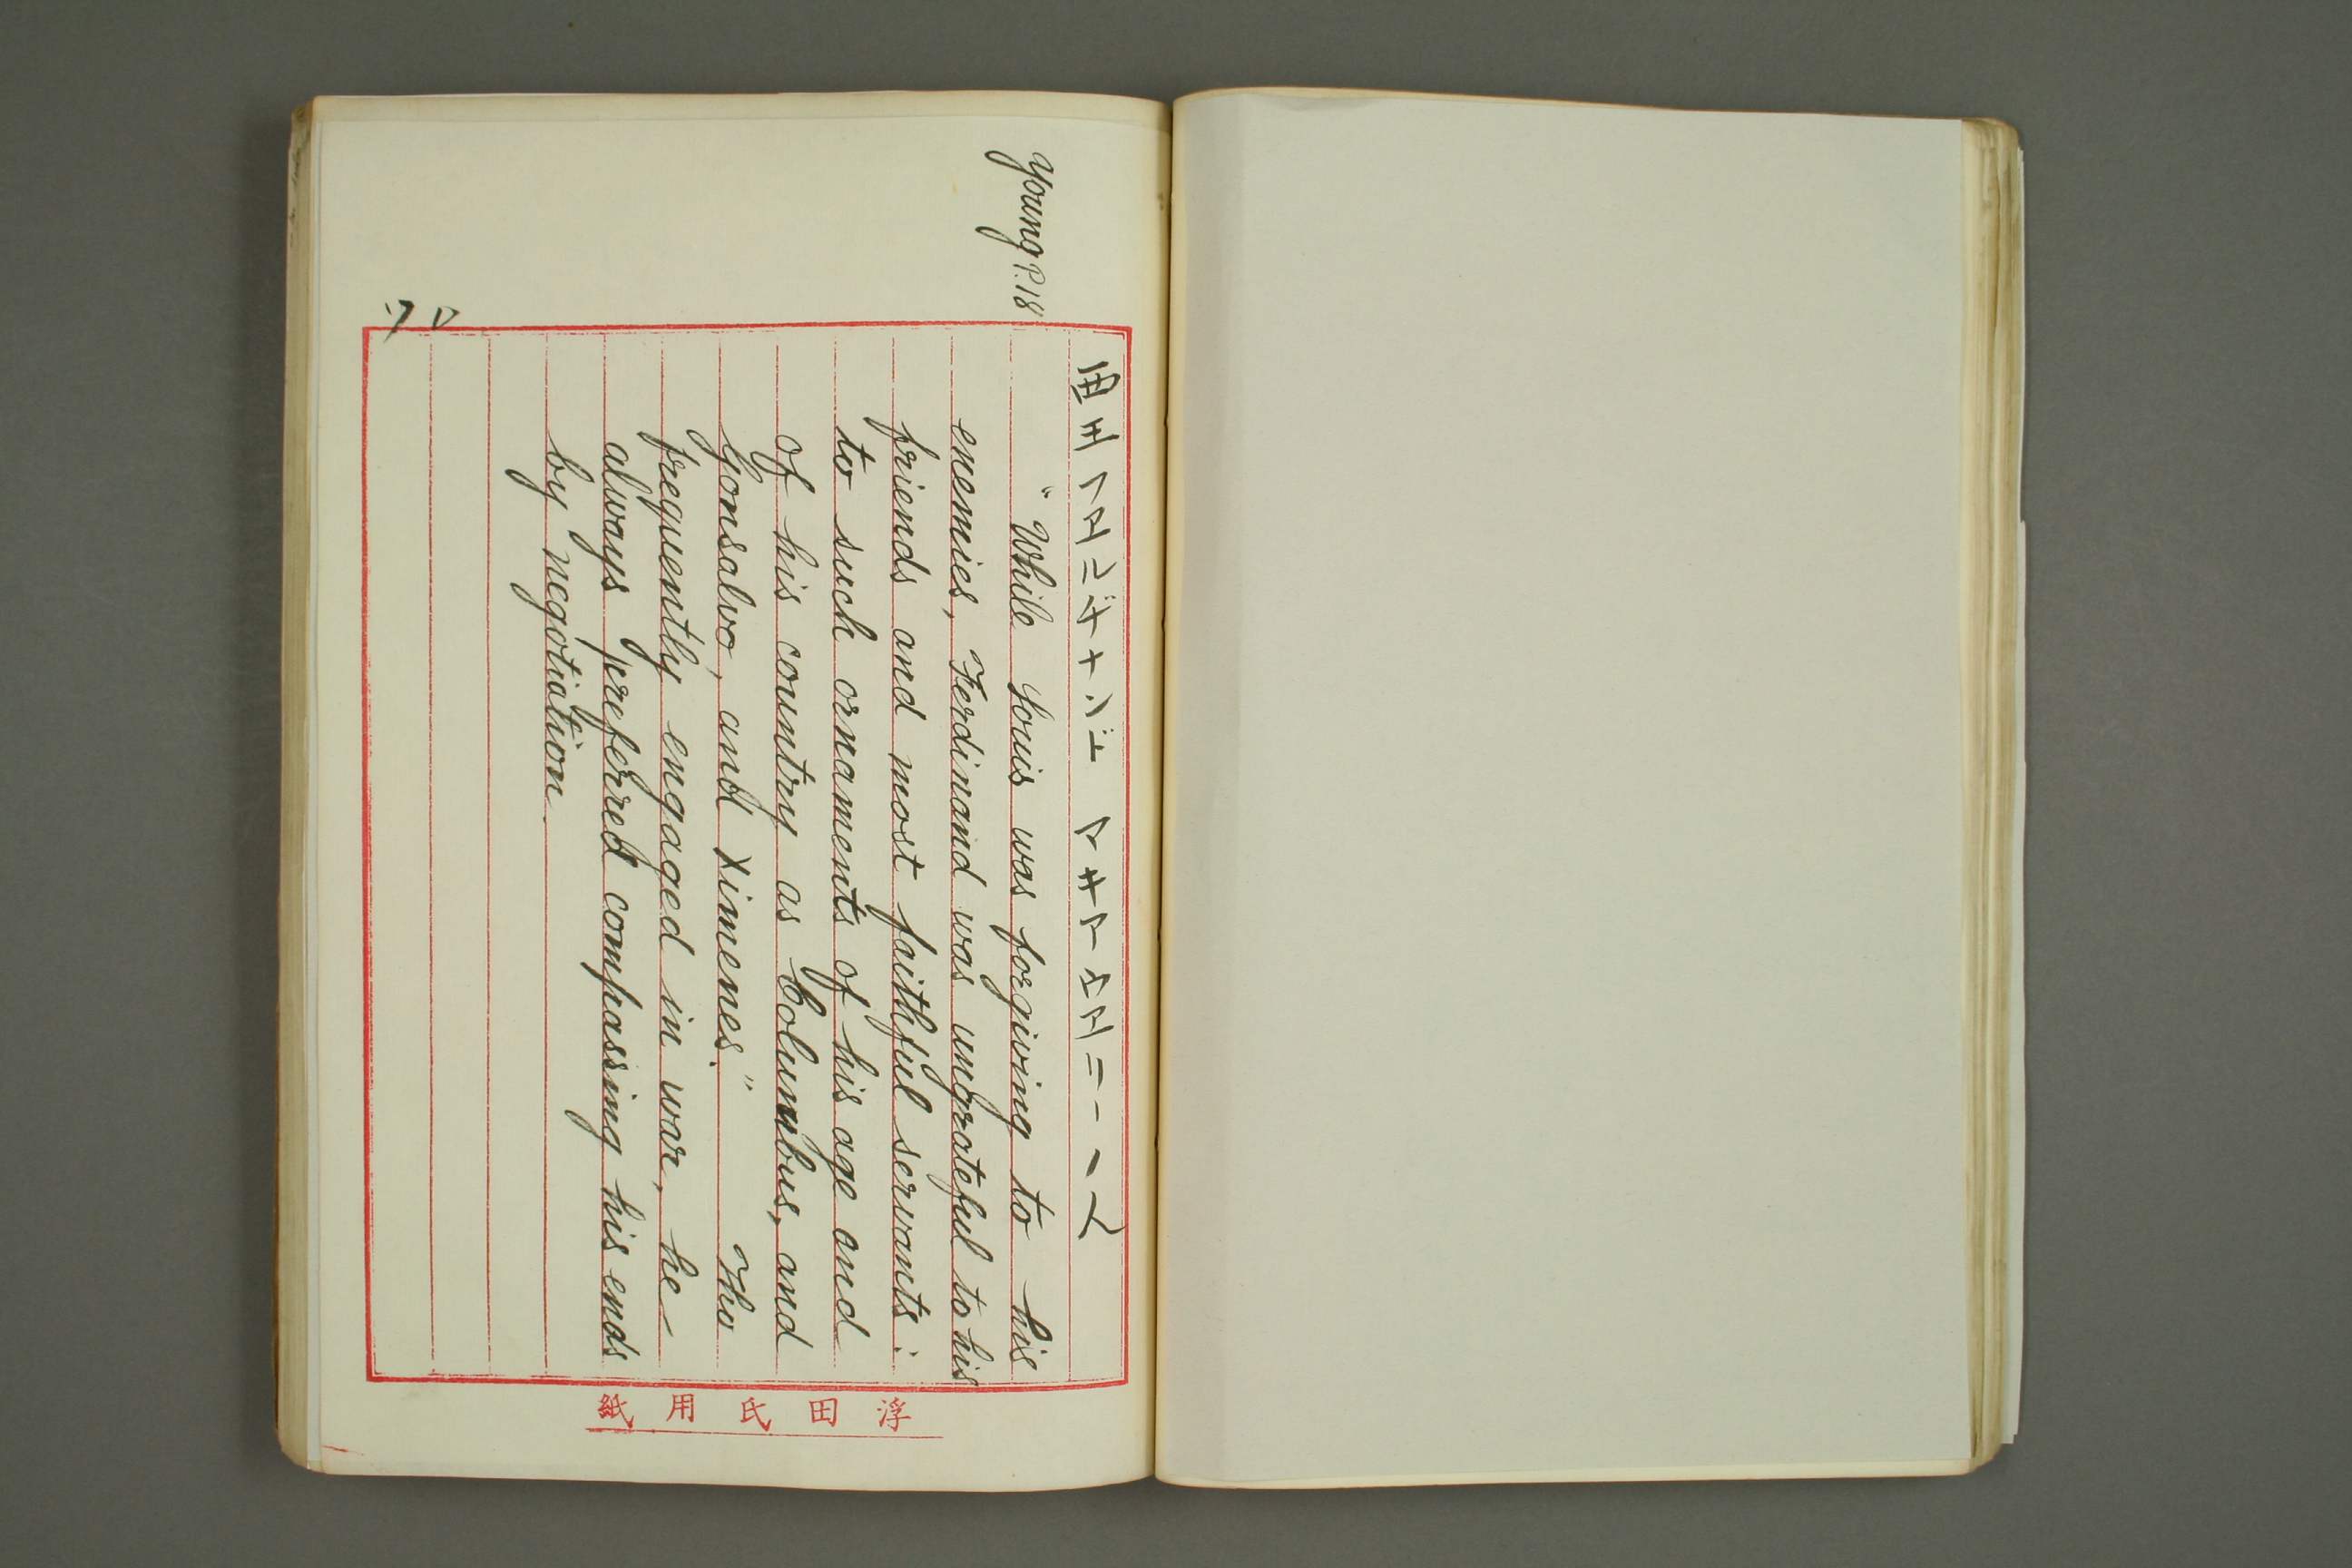 西王フヱルヂナンド マキアウヱリーノ人
Young P.18
"While Louis was forgiving to his
enemies, Ferdinand was ungrateful to his
friends and most faithful servants:
to such ornaments of his age and
of his country as Columbus, and
Gonsalvo, and Ximenes." Tho
frequently engaged in war, he
always preferred compassing his ends
by negotiation.
浮田氏用紙